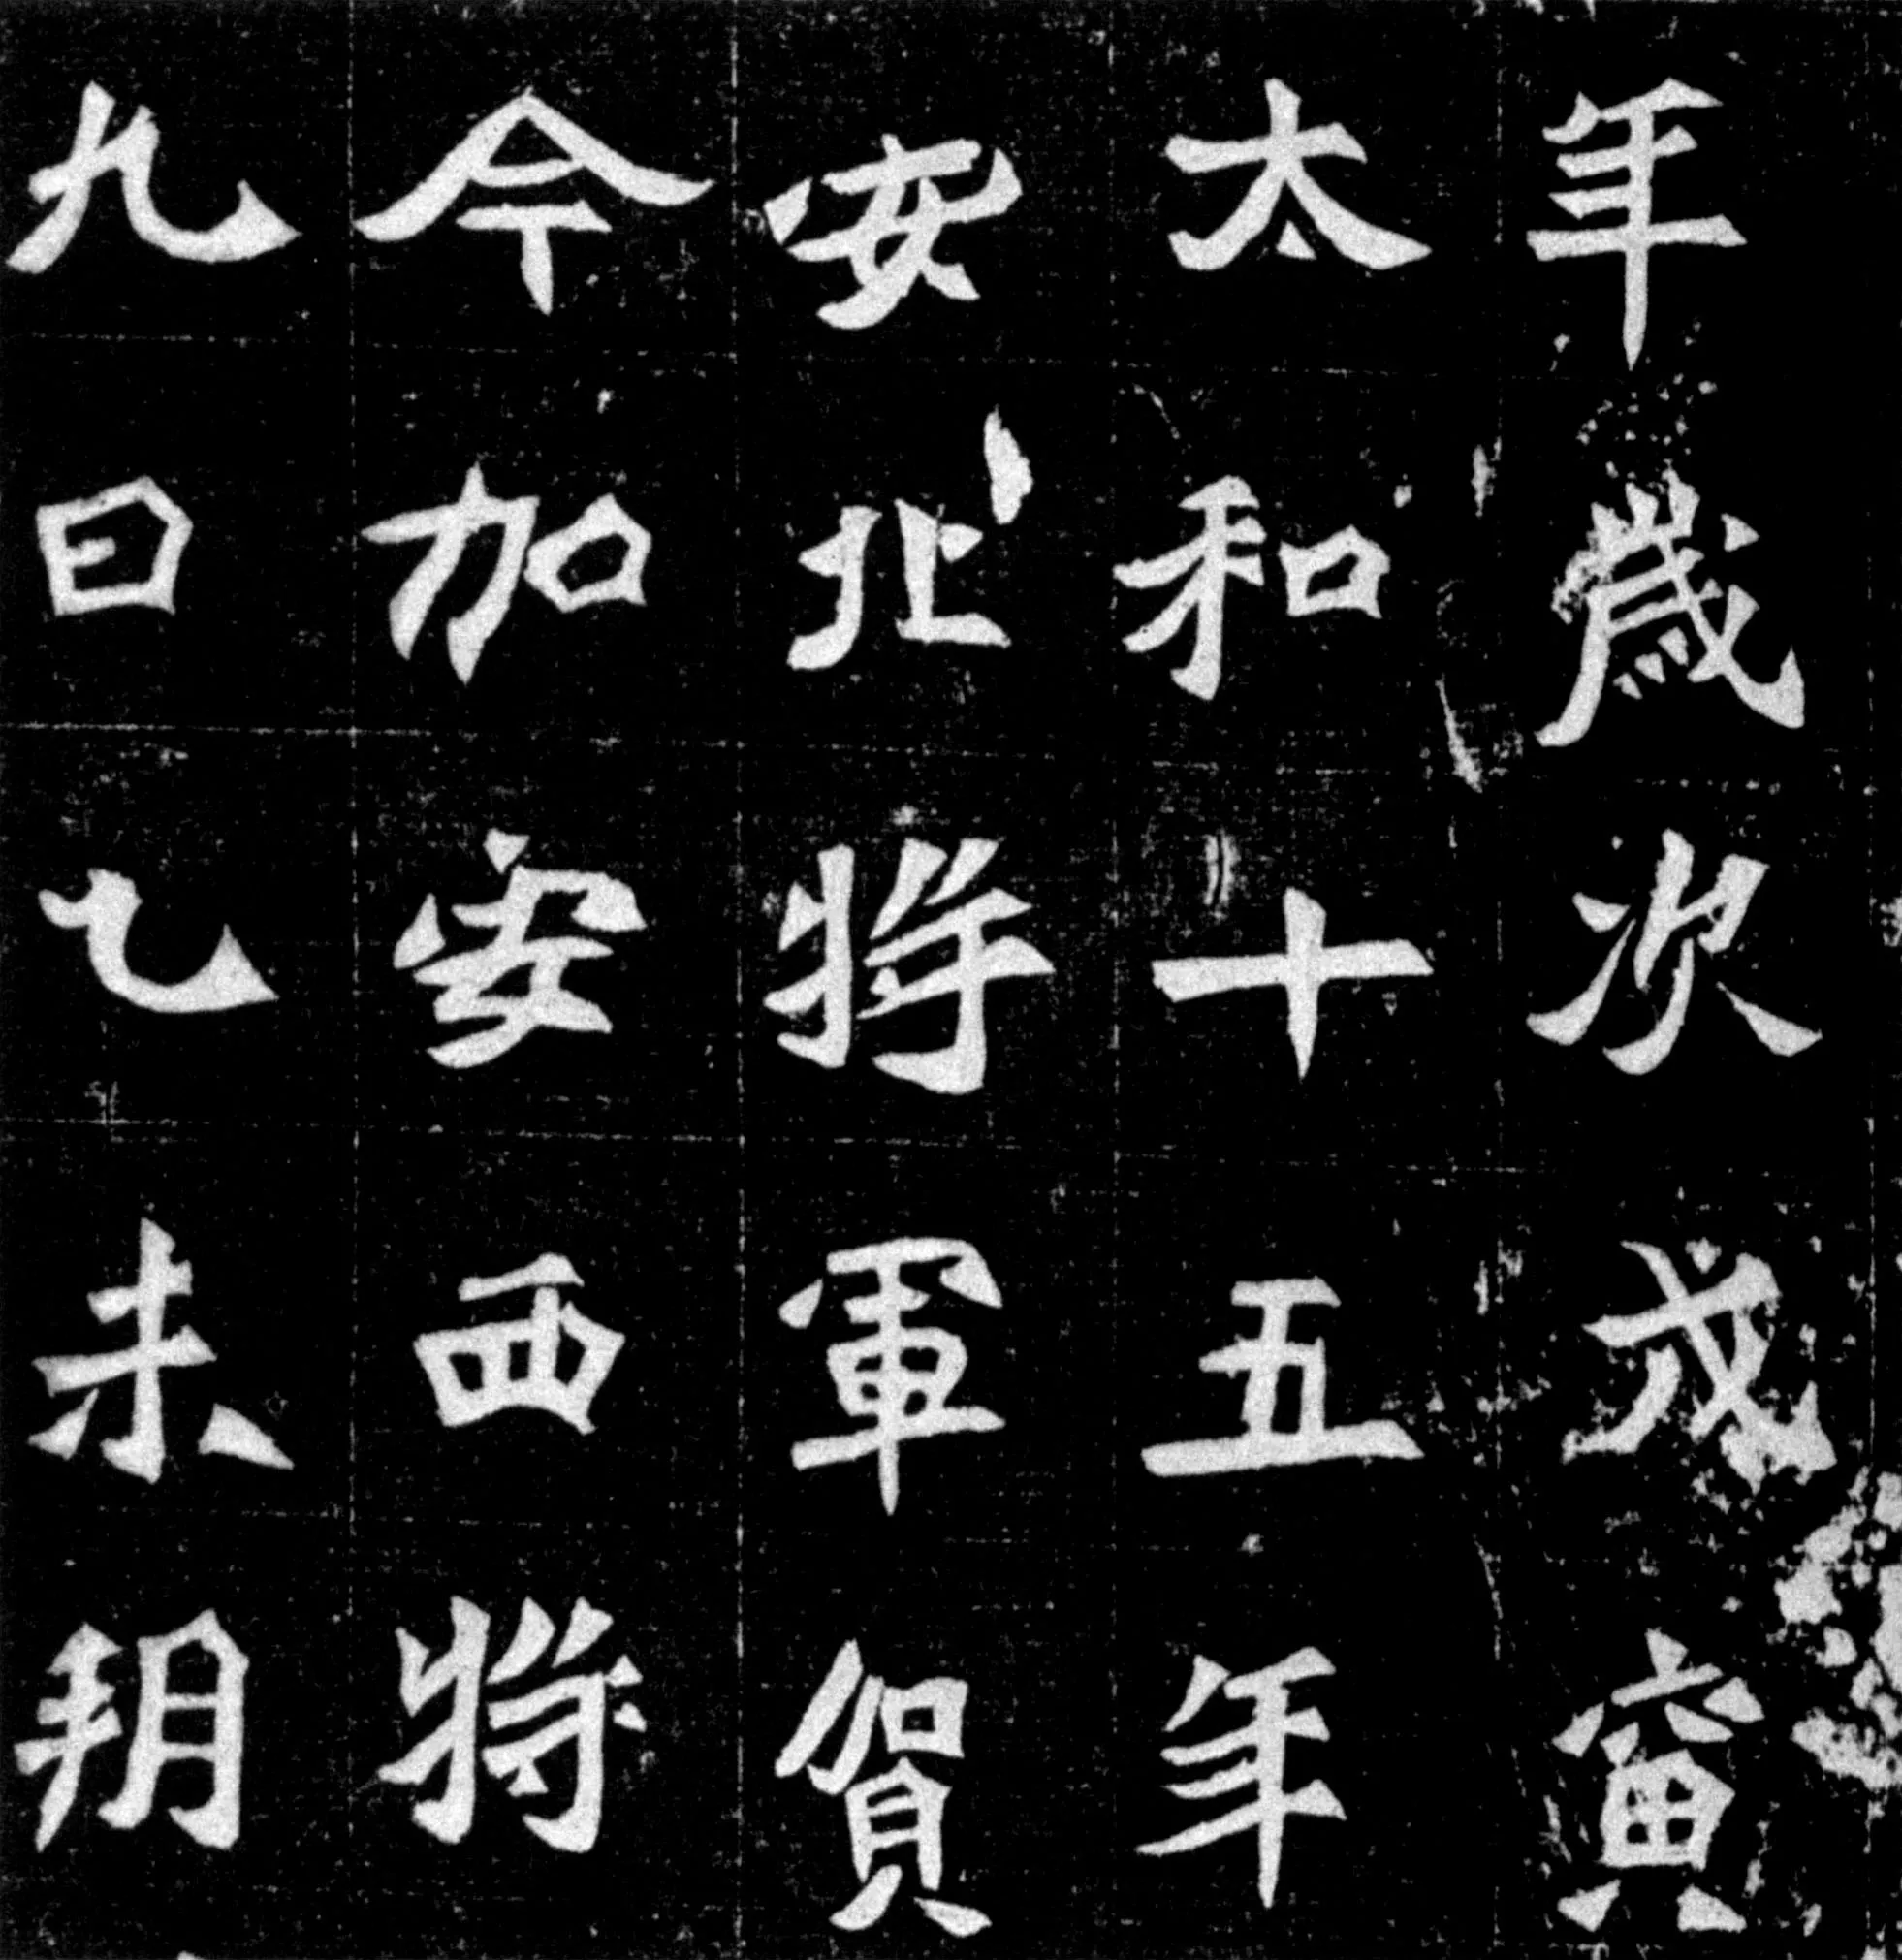 年歲次戊寅
太和十五年
安北將軍賀
今加安西將
九日乙未朔